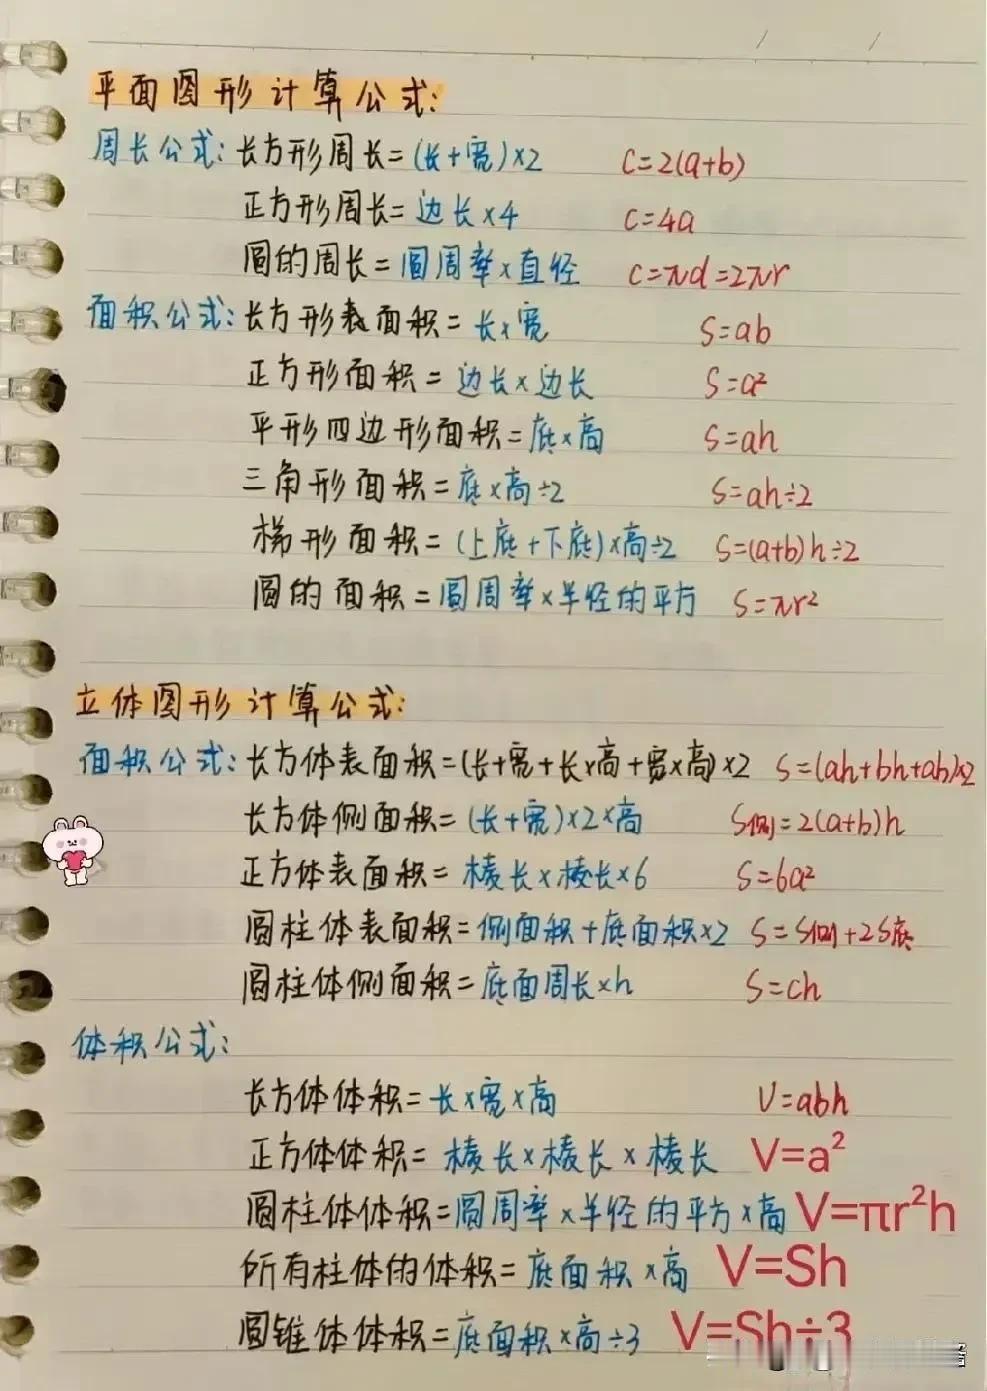 平面图形计算公式:
周长公式:长方形周长=(长+宽)×2 C=2(a+b)
正方形周长=边长×4 C=4a
圆的周长=圆周率×直径 C=πd=2πr
面积公式:长方形表面积=长×宽 S=ab
正方形面积=边长×边长 S=a²
平形四边形面积=底×高 S=ah
三角形面积=底×高÷2 S=ah÷2
梯形面积=(上底+下底)×高÷2 S=(a+b)h÷2
圆的面积=圆周率×半径的平方 S=πr²
立体图形计算公式:
面积公式:长方体表面积=(长+宽+长×高+宽×高)×2 S=(ah+bh+ab)×2
长方体侧面积=(长+宽)×2×高 S侧=2(a+b)h
正方体表面积=棱长×棱长×6 S=6a²
圆柱体表面积=侧面积+底面积×2 S=S侧+2S底
圆柱体侧面积=底面周长×h S=ch
体积公式:
长方体体积=长×宽×高 V=abh
正方体体积=棱长×棱长×棱长 V=a²
圆柱体体积=圆周率×半径的平方×高 V=πr²h
所有柱体的体积=底面积×高 V=Sh
圆锥体体积=底面积×高÷3 V=Sh÷3